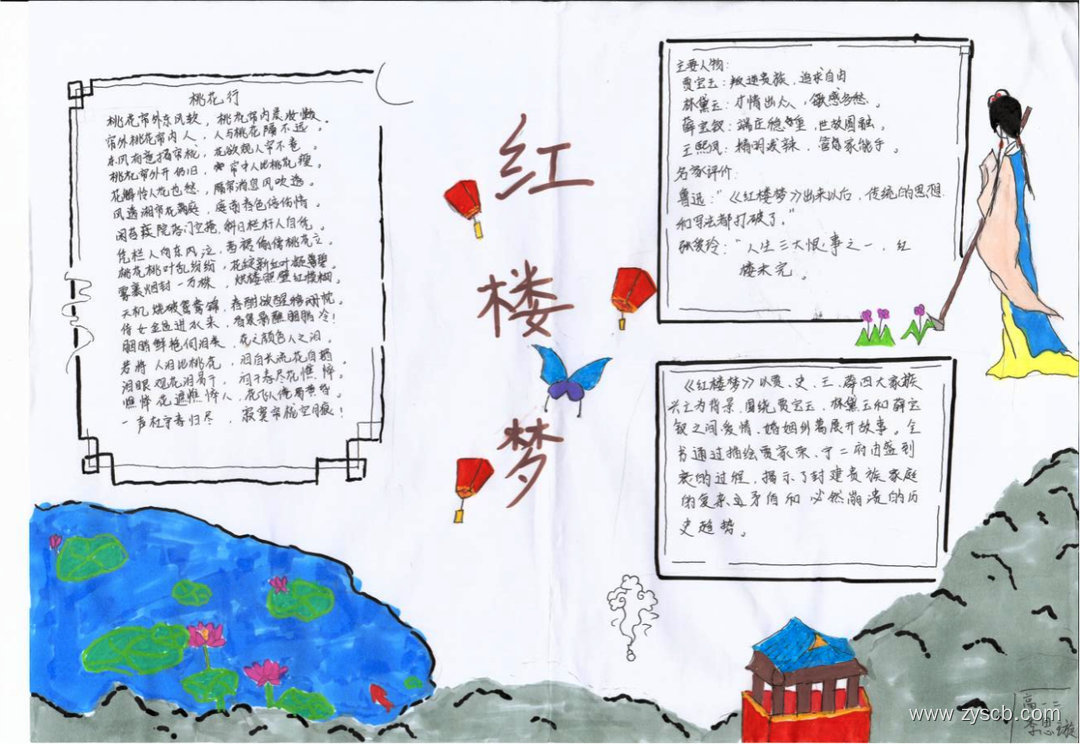 桃花行
桃花帘外东风软，桃花帘内晨妆懒。
帘外桃花帘内人，人与桃花隔不远。
东风有意揭帘栊，花欲窥人帘不卷。
桃花帘外开仍旧，帘中人比桃花瘦。
花解怜人花也愁，隔帘消息风吹透。
风透湘帘花满庭，庭前春色倍伤情。
闲苔院落门空掩，斜日栏杆人自凭。
凭栏人向东风泣，茜裙偷傍桃花立。
桃花桃叶乱纷纷，花绽新红叶凝碧。
雾裹烟封一万株，烘楼照壁红模糊。
天机烧破鸳鸯锦，春酣欲醒移珊枕。
侍女金盆进水来，香泉影蘸胭脂冷！
胭脂鲜艳何相类，花之颜色人之泪。
若将人泪比桃花，泪自长流花自媚。
泪眼观花泪易干，泪干春尽花憔悴。
憔悴花遮憔悴人，花飞人倦易黄昏。
一声杜宇春归尽，寂寞帘栊空月痕！
红
楼
梦
主要人物：
贾宝玉：叛逆贵族，追求自由
林黛玉：才情出众，敏感多愁。
薛宝钗：端庄稳重，世故圆融。
王熙凤：精明泼辣，管家能手。
名家评价：
鲁迅："《红楼梦》出来以后，传统的思想
和写法都打破了。"
张爱玲："人生三大恨事之一，红
楼未完。
《红楼梦》以贾、史、王、薛四大家族
兴亡为背景，围绕贾宝玉、林黛玉和薛宝
钗之间爱情、婚姻纠葛展开故事。全
书通过描绘贾家荣、宁二府由盛到
衰的过程，揭示了封建贵族家庭
的复杂矛盾和必然崩溃的历
史趋势。
高二
李思璇
www.zyscb.com